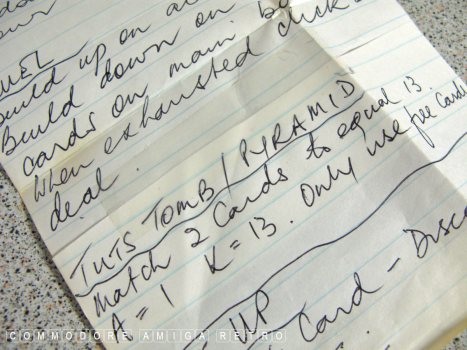 our
UEL
build up on
Build down on main bo
cards on
when exhausted click
deal
TUTS TOMB / PYRAMID
Match 2 Cards to equal 13.
A = 1 K = 13. Only use free Cards
UP
Card - Disca
COMMODORE AMIGA RETRO